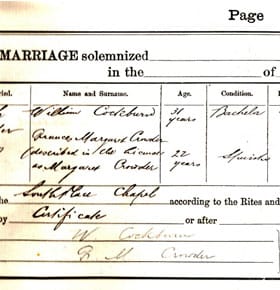 Page
MARRIAGE solemnized
in the of
ried. Name and Surname. Age. Condition.
William Cockburn 31 years Bachelor
Frances Margaret Crowder
(described in the license 22 years Spinster
as Margaret Crowder
he South Place Chapel according to the Rites and
by Certificate or after
W. Cockburn
F M Crowder